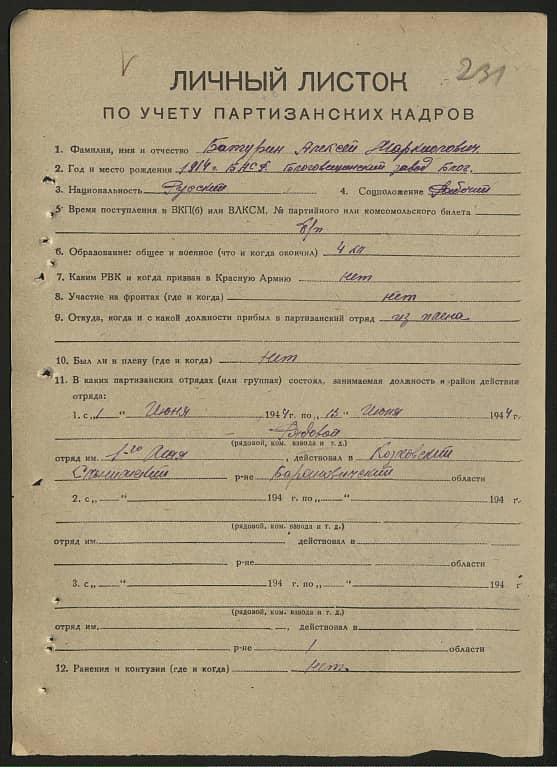 231
ЛИЧНЫЙ ЛИСТОК
ПО УЧЕТУ ПАРТИЗАНСКИХ КАДРОВ
1. Фамилия, имя и отчество Батурин Алексей
2. Год и место рождения 1914 г. завод
3. Национальность Русский 4. Соцположение Рабочий
5. Время поступления в ВКП(б) или ВЛКСМ, № партийного или комсомольского билета
б/п
6. Образование: общее и военное (что и когда окончил) 4 кл
7. Каким РВК и когда призван в Красную Армию нет
8. Участие на фронтах (где и когда) нет
9. Откуда, когда и с какой должности прибыл в партизанский отряд из плена
10. Был ли в плену (где и когда) Нет
11. В каких партизанских отрядах (или группах) состоял, занимаемая должность и район действия
отряда:
1. с „1 “ Июня 1944 г. по „ “ Июня 1944 г.
Рядовой
(рядовой, ком. взвода и т. д.)
отряд им. 1-го Мая, действовал в
р-не Барановичский области
2. с „ “ 194 г. по „ “ 194 г.
(рядовой, ком. взвода и т. д.)
отряд им. действовал в
р-не области
3. с „ “ 194 г. по „ “ 194 г.
(рядовой, ком. взвода и т. д.)
отряд им. , действовал в
р-не области
12. Ранения и контузии (где и когда) Нет